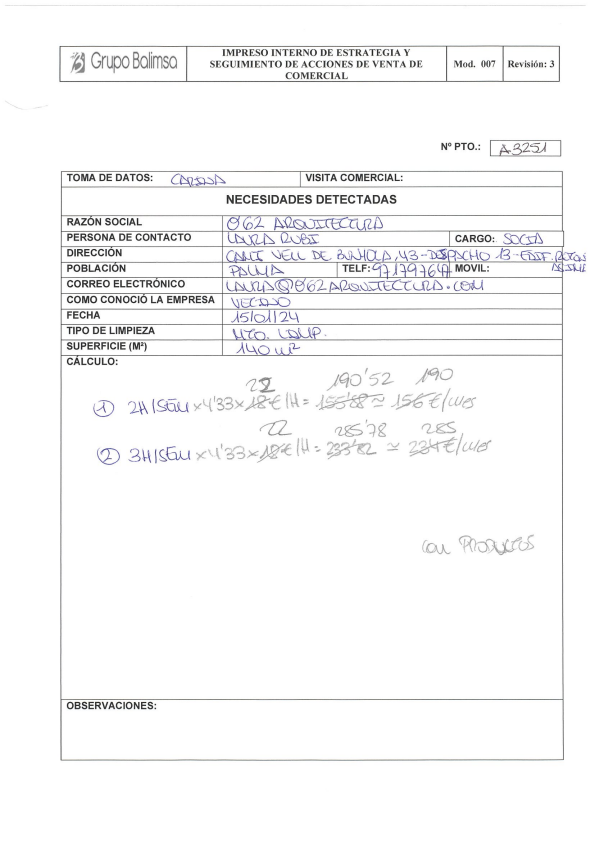 Grupo Balimsa
IMPRESO INTERNO DE ESTRATEGIA Y
SEGUIMIENTO DE ACCIONES DE VENTA DE
COMERCIAL
Mod. 007
Revisión: 3
Nº PTO.: A3251
TOMA DE DATOS: CARINA
VISITA COMERCIAL:
NECESIDADES DETECTADAS
RAZÓN SOCIAL 0'62 ARQUITECTURA
PERSONA DE CONTACTO LAURA RUBI CARGO: SOCIA
DIRECCIÓN CAMI VELL DE BUNYOLA, 43-DESPACHO 13-EDIF.
POBLACIÓN PALMA TELF: 971797647 MOVIL:
CORREO ELECTRÓNICO LAURA@0'62ARQUITECTURA.COM
COMO CONOCIÓ LA EMPRESA VECINO
FECHA 15/01/24
TIPO DE LIMPIEZA MTO. LIMP.
SUPERFICIE (M²) 140 m²
CÁLCULO:
22 190'52 190
① 2H/SEM x4'33x18€/H = 155'88 ≃ 156€/MES
22 285'78 285
② 3H/SEM x4'33x18€/H = 233'82 ≃ 234€/MES
con PRODUCTOS
OBSERVACIONES: